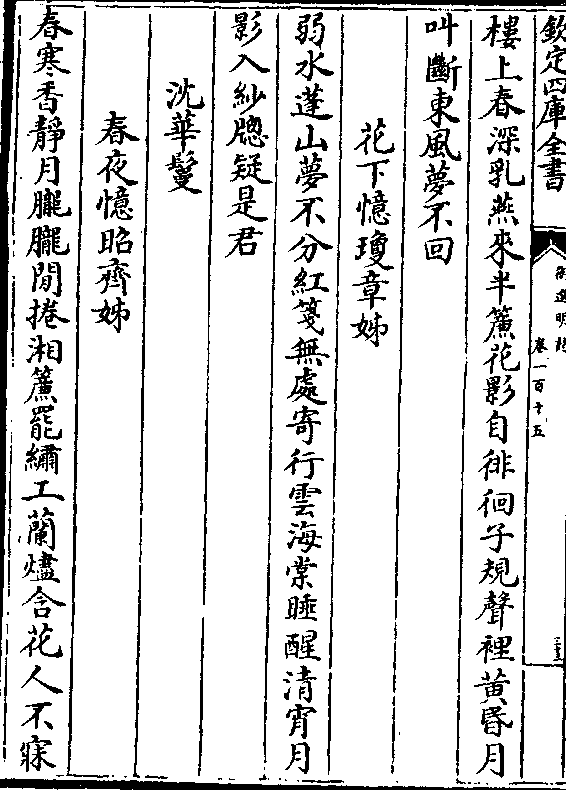 欽定四庫全書
御選明詩
卷一百十五
樓上春深乳燕來半簾花影自徘徊子規聲裡黃昏月
叫斷東風夢不回
花下憶瓊章姊
弱水蓬山夢不分紅箋無處寄行雲海棠睡醒清宵月
影入紗牕疑是君
沈華鬘
春夜憶昭齊姊
春寒香靜月朧朧閒捲湘簾罷繡工蘭燼含花人不寐